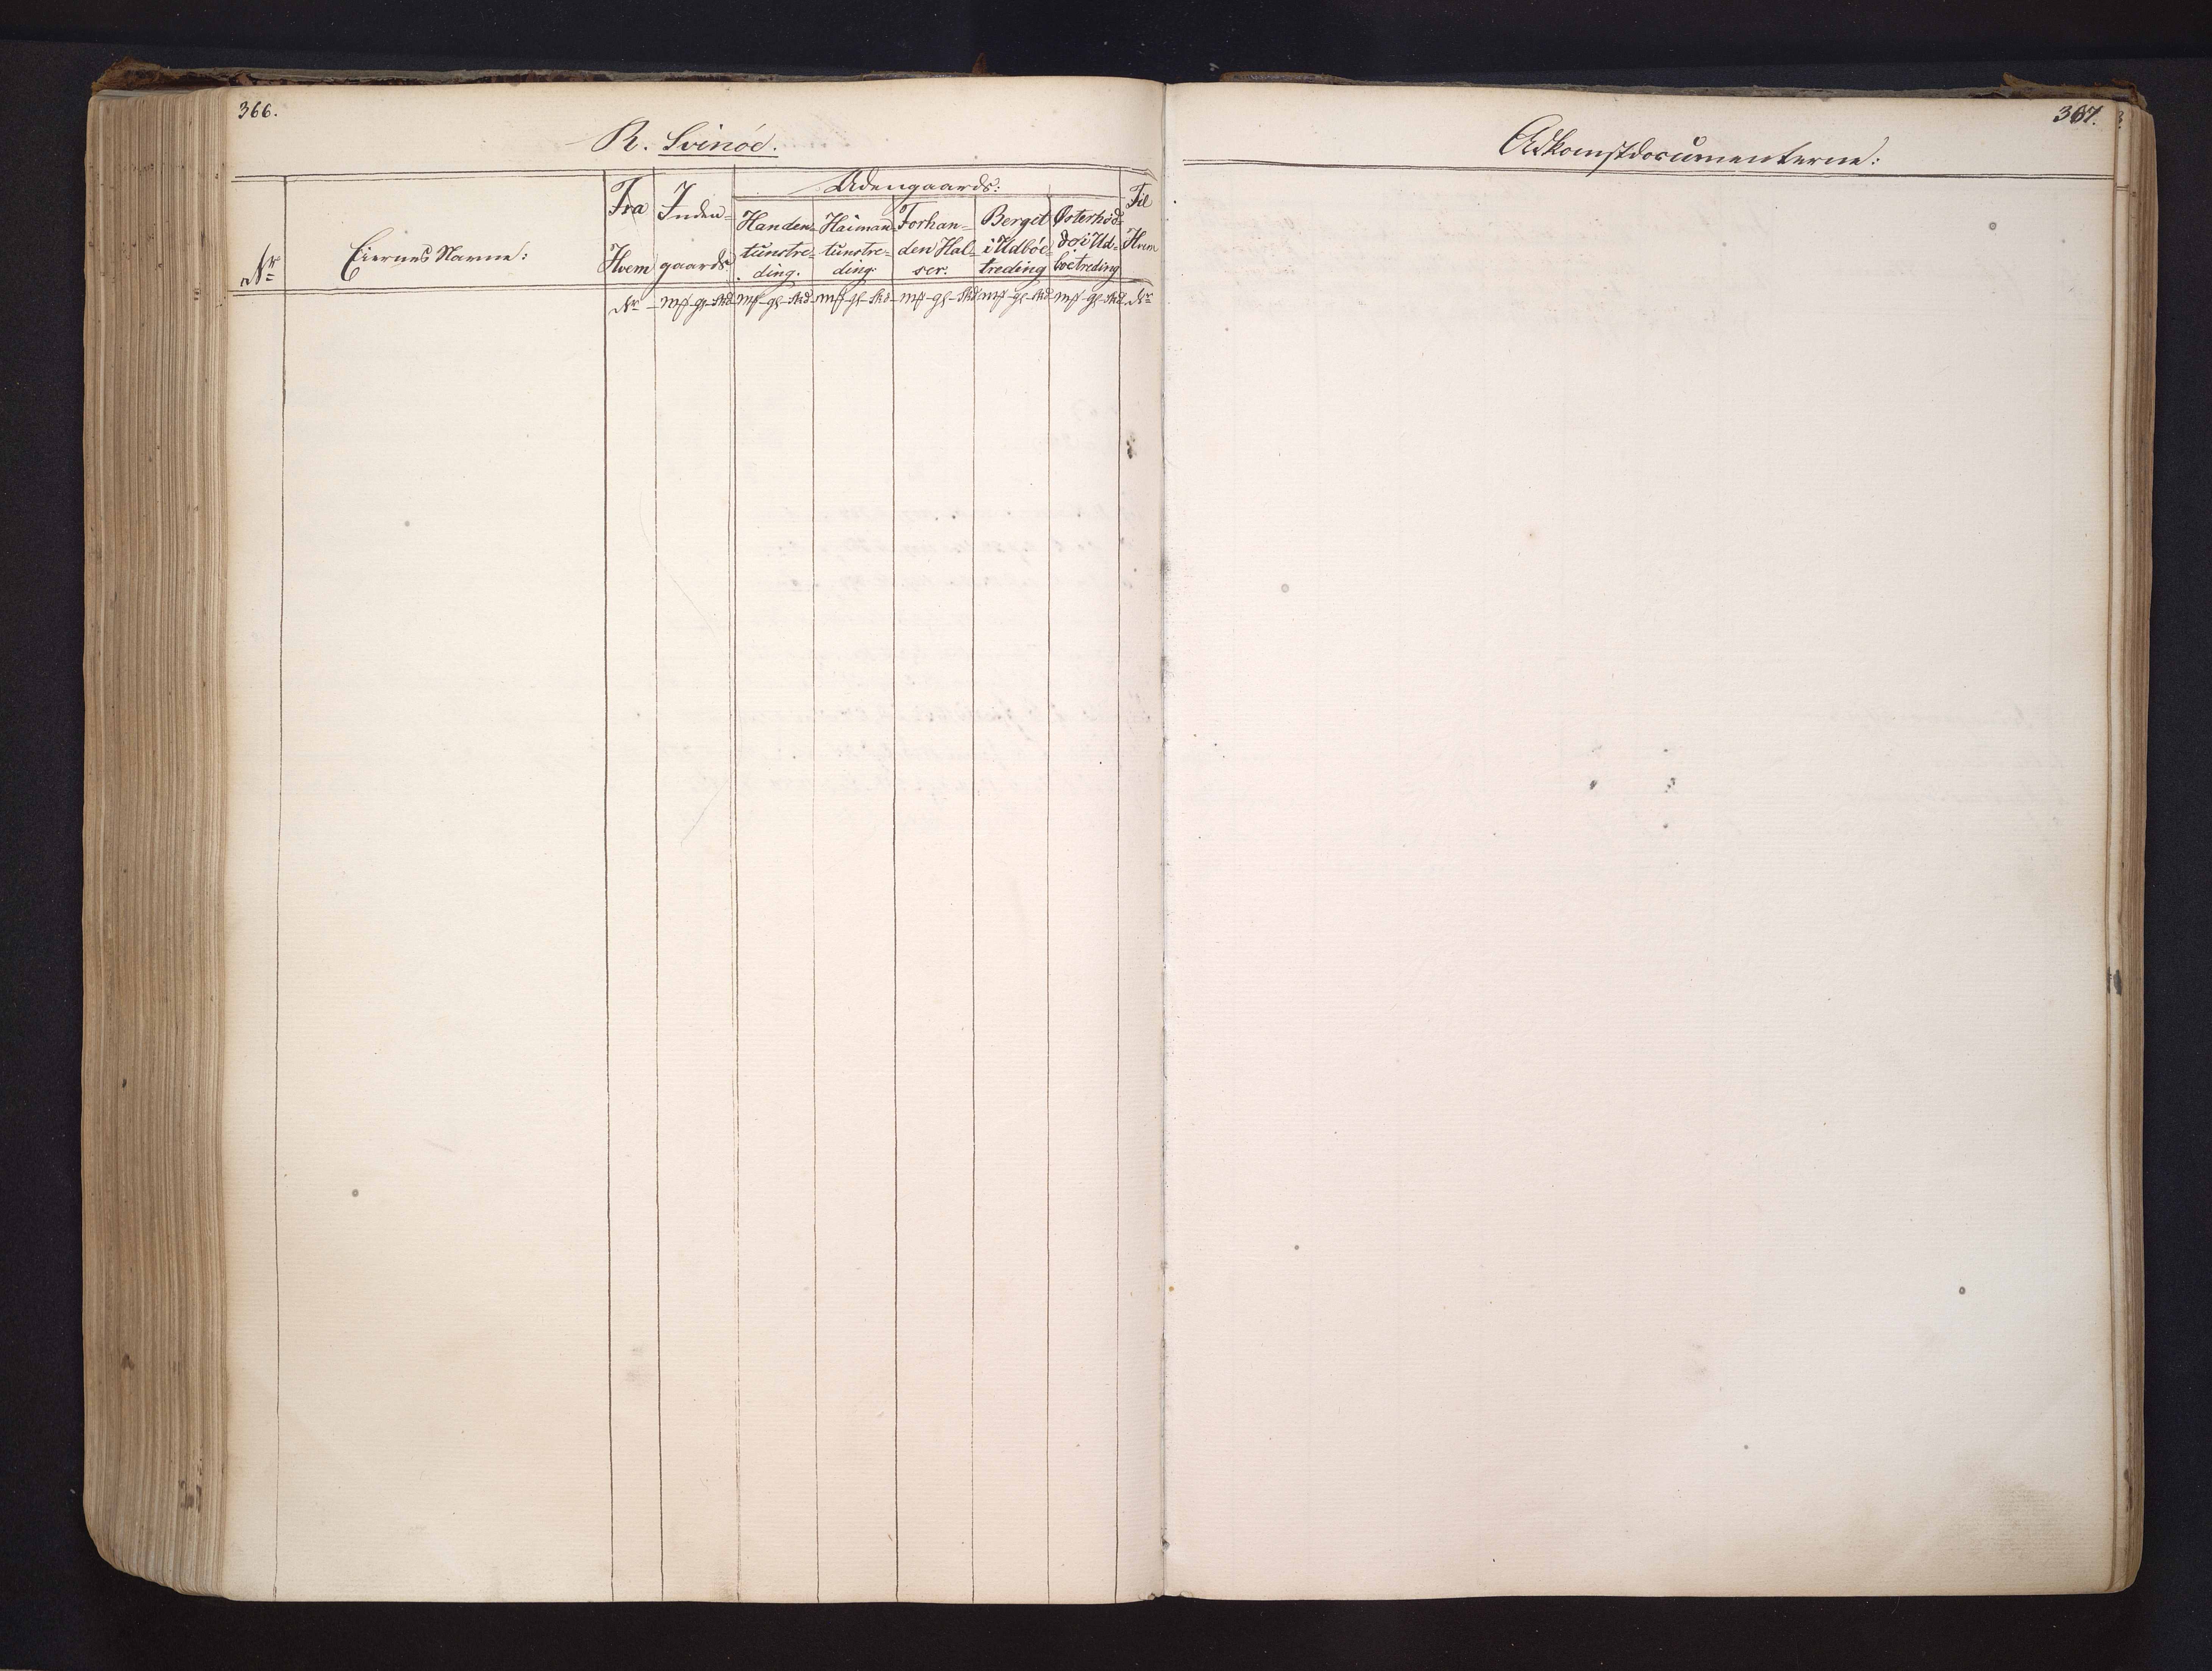 366.
R. Svinöe.
Nr
Eiernes Navne:
Fra
Hvem
Inden-
gaards
Udengaards:
Handen-
tunstre-
ding.
Haiman-
tunstre-
ding.
Forhan-
den Hal-
ser.
Berget
i Udböe
treding
Østerhöd-
do i Ud-
böetreding
Til
Hvem
Nr mk gl skd mk gl skd mk gl skd mk gl skd mk gl skd mk gl skd Nr
367.
Adkomstdocumenterne: